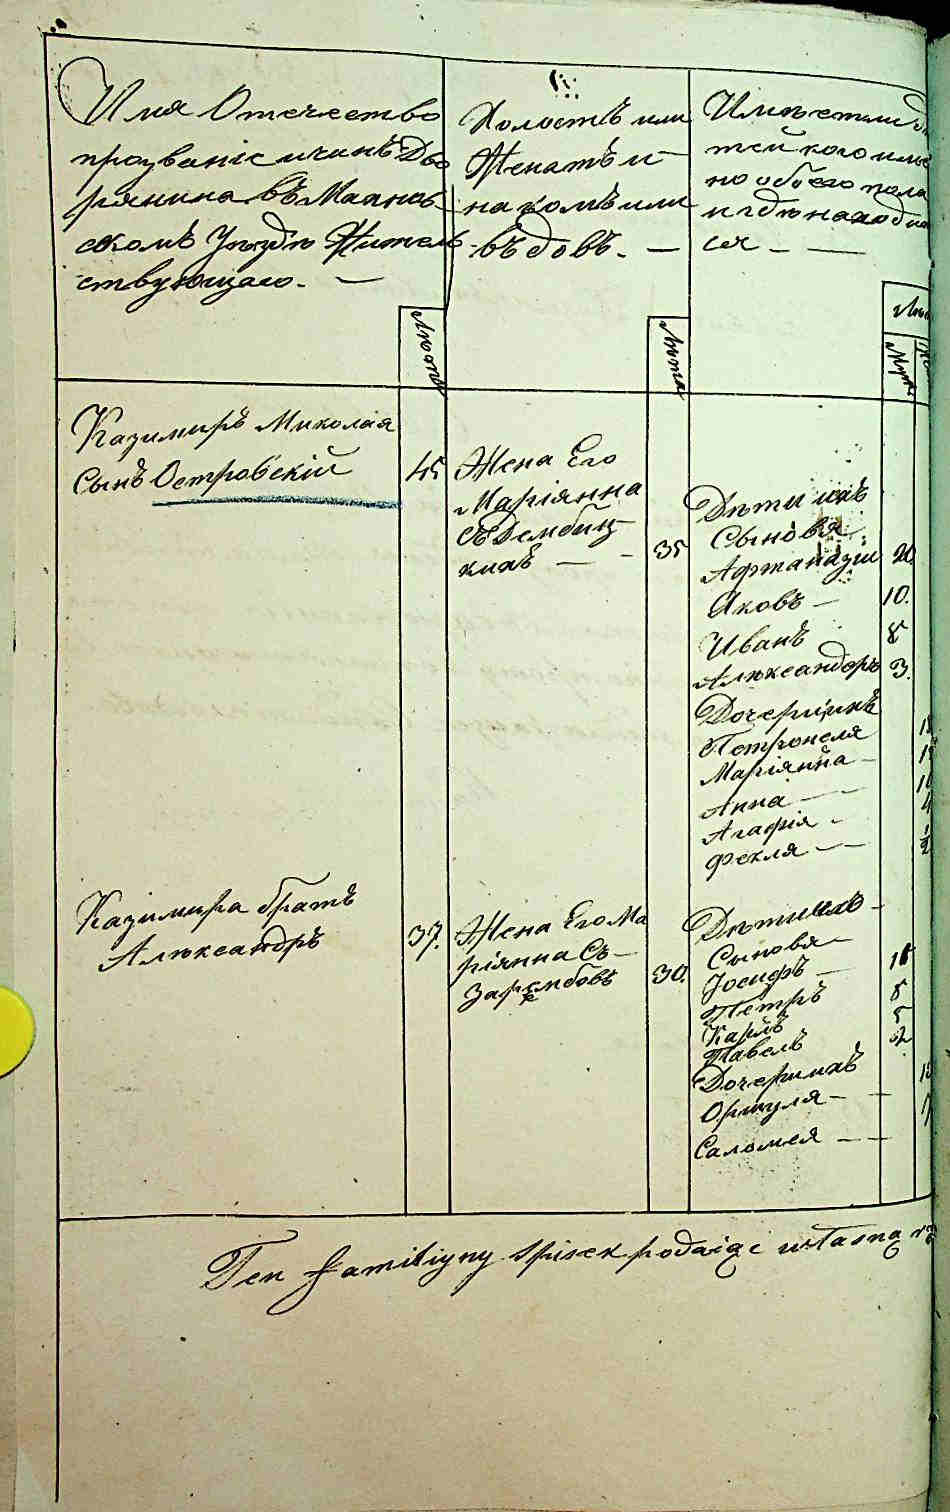 Имя Отечество
прозваніе и чинъ Дво
рянина въ Махнов-
скомъ Уѣздѣ Житель
ствующаго. —
Лѣта
Холостъ или
Женатъ и
на комъ или
въдовъ. —
Лѣта
Имѣетъ ли дѣ
тей кого имѣ
но обоего пола
и гдѣ находят
ся — —
Казимиръ Миколая
Сынъ Островскій
45
Жена Его
Маріянна
съ Дембиц-
кихъ — —
35
Дѣти ихъ
Сыновя
Афтаназiи 20.
Яковъ — 10.
Иванъ 8
Алѣксандеръ 3.
Дочери ихъ
Петронеля
Маріянна —
Анна —
Агафія - 4
Фекля — 1/2
Казимира братъ
Алѣксандръ
37.
Жена Его Ма
ріянна Съ-
Зарембовъ
30.
Дѣти ихъ -
Сыновя —
Іосифъ —
Петръ 8
Карлъ 5
Павелъ 2
Дочери ихъ
Оршуля —
Саломея — —
Ten familiyny spisek podaiąc własną